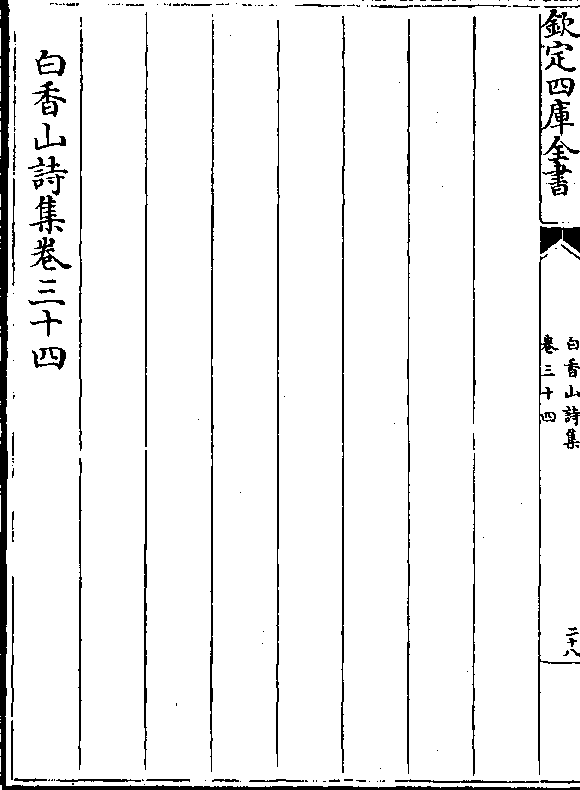 欽定四庫全書
白香山詩集
卷三十四
二十八
白香山詩集卷三十四